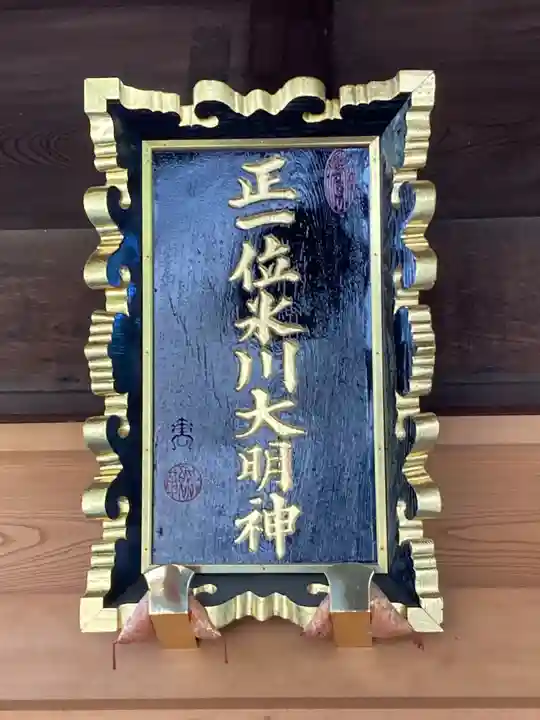 正一位氷川大明神